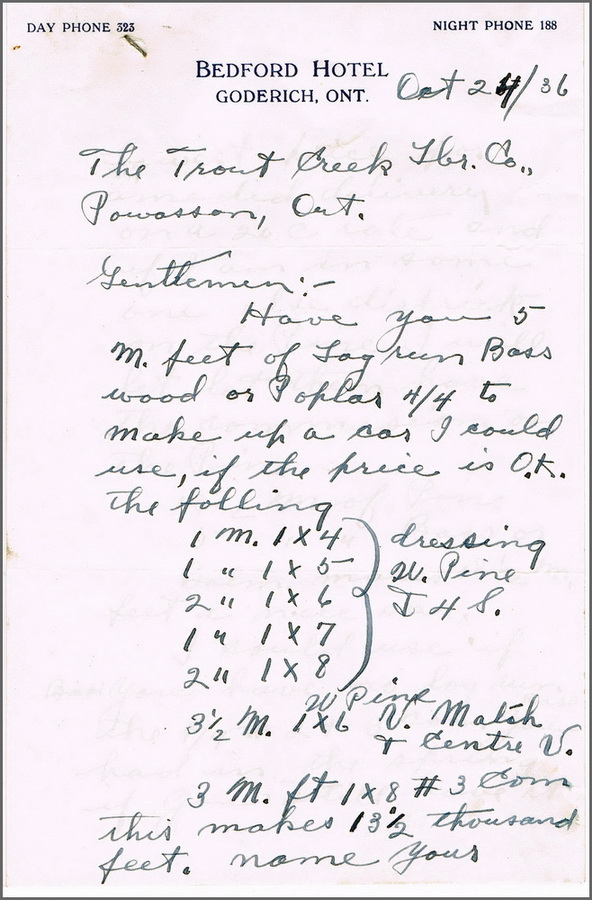 DAY PHONE 323
NIGHT PHONE 188
BEDFORD HOTEL
GODERICH, ONT.
Oct 24/36
The Trout Creek Lbr. Co.,
Powasson, Ont.
Gentlemen:-
Have you 5
M. feet of Log run Bass
wood or Poplar 4/4 to
make up a car I could
use, if the price is O.K.
the folling
1 M. 1 x 4 dressing
1 " 1 x 5 W. Pine
2 " 1 x 6 I 4 S.
1 " 1 x 7
2 " 1 x 8
W Pine
3 1/2 M. 1x6 V. Match
+ Centre V.
3 M. ft 1x8 #3 Com
this makes 13 1/2 thousand
feet. name your